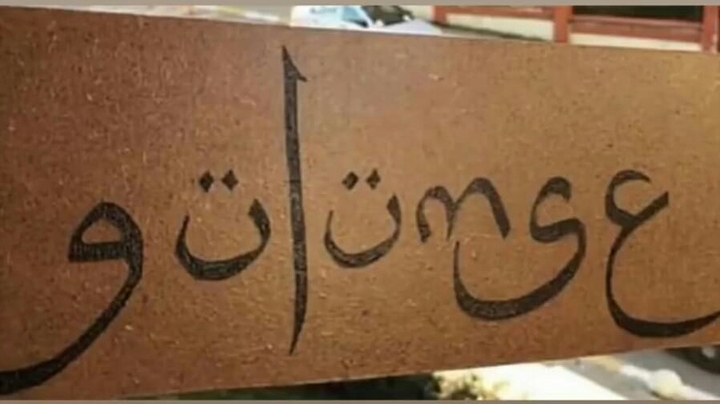 gülümse